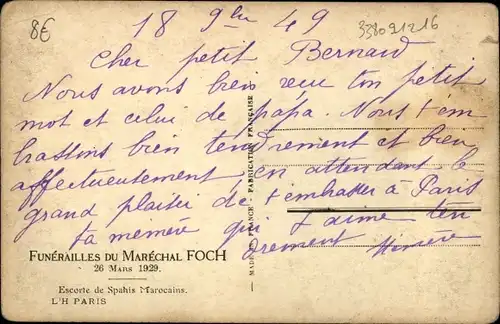 8€
338091216
18 9bre 49
Cher petit Bernard
Nous avons bien reçu ton petit
mot et celui de papa. Nous t'em
brassons bien tendrement et bien
affectueusement, en attendant le
grand plaisir de t'embrasser à Paris
ta mémère qui t'aime ten
drement Mémère
FUNÉRAILLES DU MARÉCHAL FOCH
26 MARS 1929.
Escorte de Spahis Marocains.
L'H PARIS
MADE IN FRANCE FABRICATION FRANÇAISE